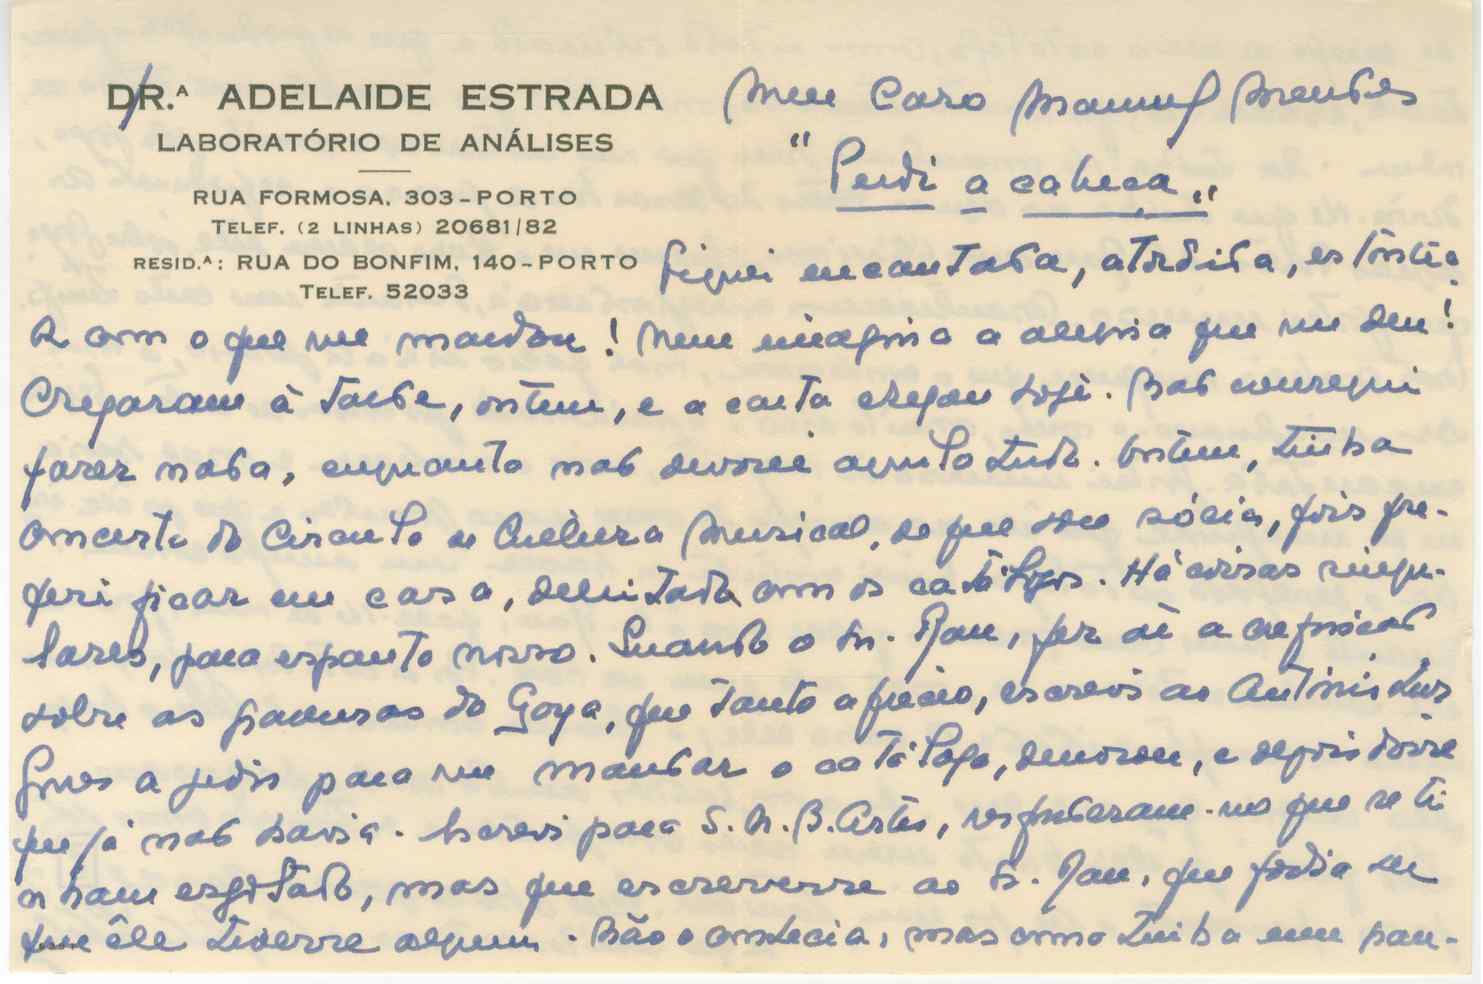 DR.ᴬ ADELAIDE ESTRADA
LABORATÓRIO DE ANÁLISES
RUA FORMOSA, 303-PORTO
TELEF. (2 LINHAS) 20681/82
RESID.ᴬ: RUA DO BONFIM, 140-PORTO
TELEF. 52033
Meu Caro Manuel Mendes
"Perdi a cabeça"
Fiquei encantada, atordida, estônti-
ca com o que me mandou! Nem imagina a alegria que me deu!
Chegaram à tarde, ontem, e a carta chegou hoje. Não consegui
fazer nada, enquanto não devorei aquilo tudo. Ontem, tinha
concerto do Circulo de Cultura Musical, de que sou sócia, pois pre-
feri ficar em casa, deleitada com os catálogos. Há coisas singu-
lares, para espanto nosso. Quando o Sr. Rau, fez aí a exposição
sobre as gravuras do Goya, que tanto aprecio, escrevi ao António Luís
Gomes a pedir para me mandar o catálogo, demorou, e depois disse
que já não havia. Escrevi para S. N. B. Artes, responderam-me que se ti-
nham esgotado, mas que escrevesse ao Sr. Rau, que podia ser
que êle tivesse algum. Não o conhecia, mas como tinha um pau-